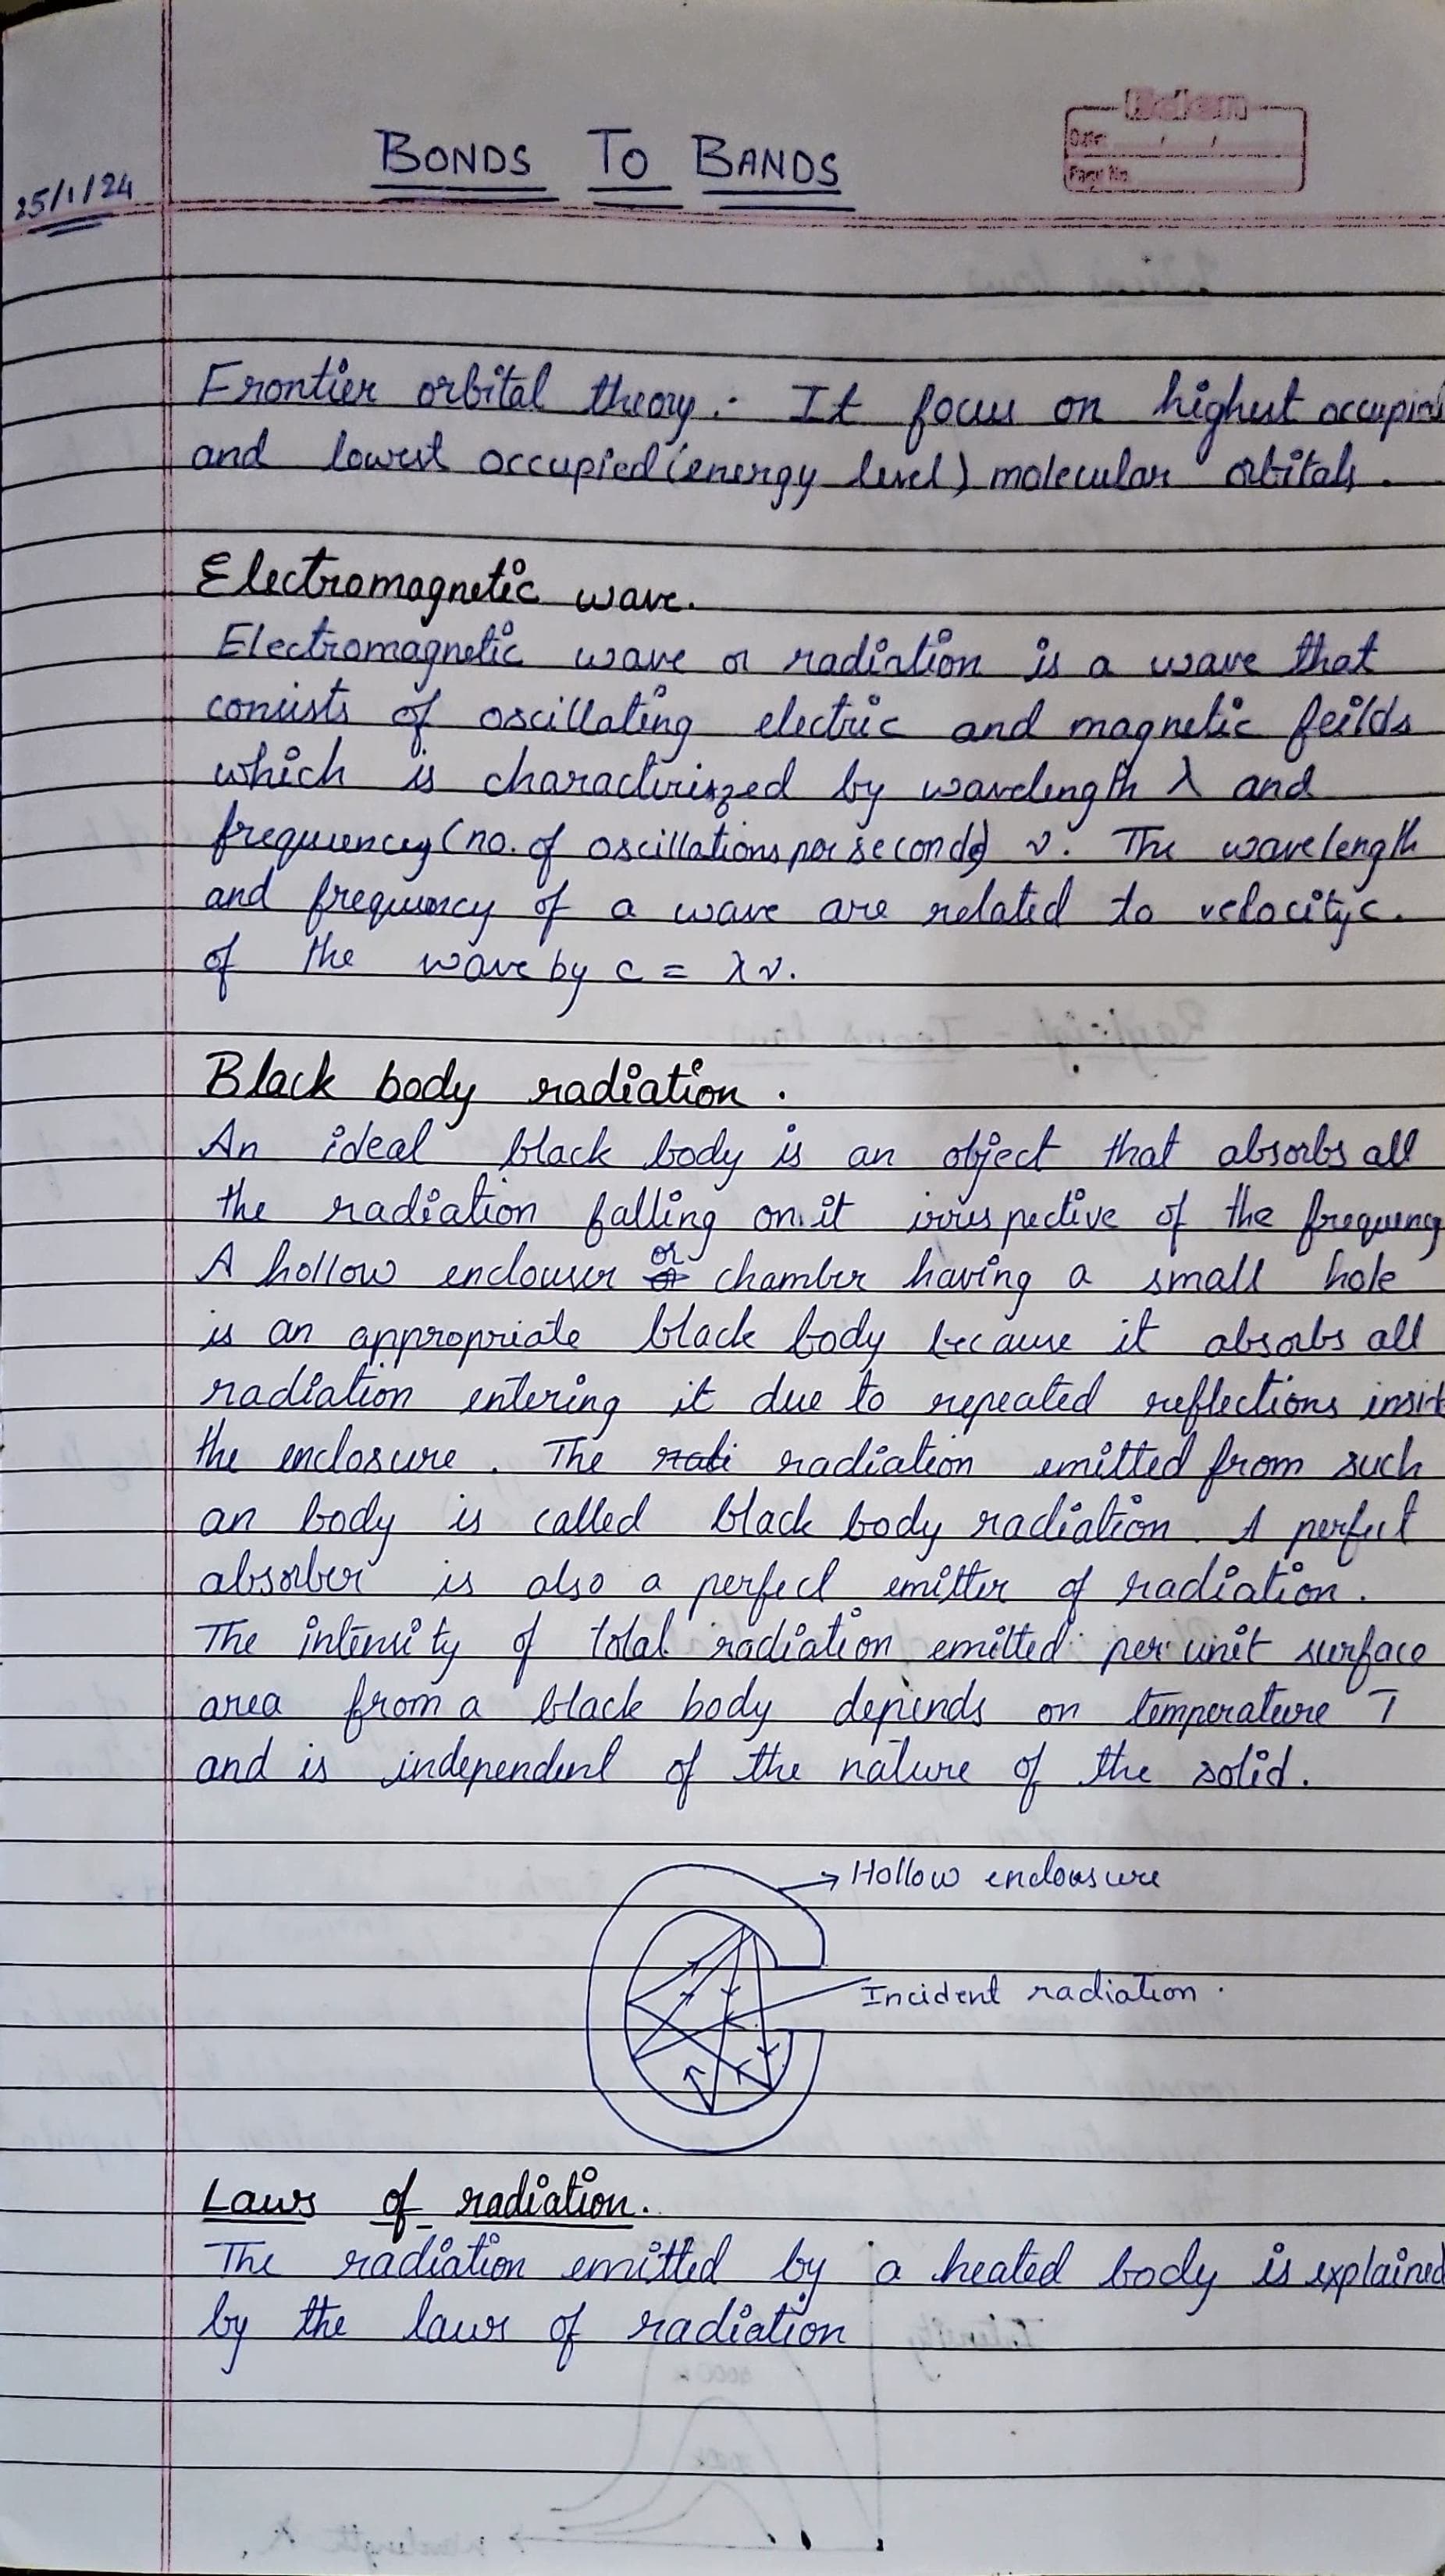 BONDS TO BANDS
Date: / /
Page No.
25/1/24
Frontier orbital theory :- It focus on highest occupied
and lowest occupied (energy level) molecular orbitals.
Electromagnetic wave.
Electromagnetic wave or radiation is a wave that
consists of oscillating electric and magnetic feilds
which is characterized by wavelength λ and
frequency (no. of oscillations per second) ν. The wavelength
and frequency of a wave are related to velocity c.
of the wave by c = λν.
Black body radiation.
An ideal black body is an object that absorbs all
the radiation falling on it irrespective of the frequency
A hollow enclouser or chamber having a small hole
is an appropriate black body because it absorbs all
radiation entering it due to repeated reflections insid
the enclosure. The radi radiation emitted from such
an body is called black body radiation. A perfect
absorber is also a perfect emitter of radiation.
The intensity of total radiation emitted per unit surface
area from a black body depends on temperature T
and is independent of the nature of the solid.
Hollow enclousure
Incident radiation.
Laws of radiation.
The radiation emitted by a heated body is explained
by the laws of radiation